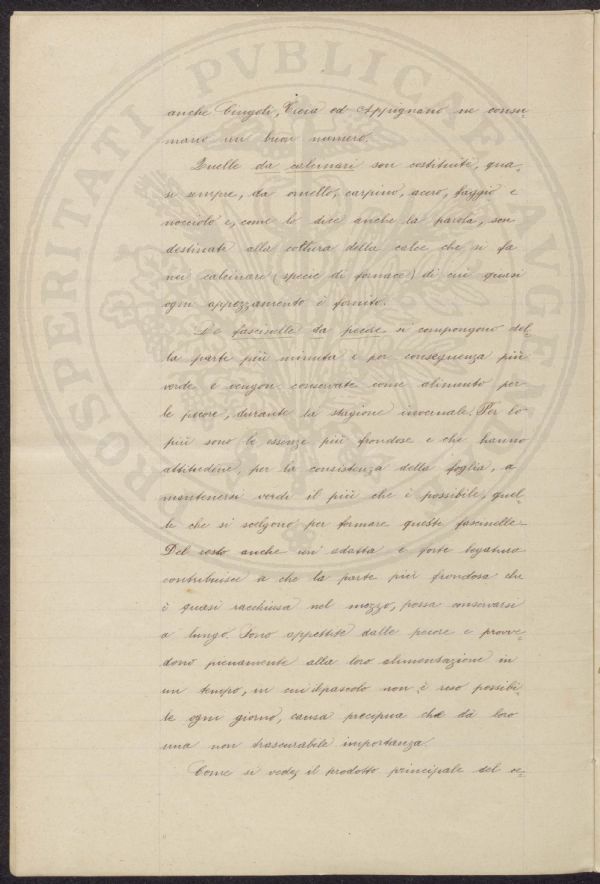 PROSPERITATI PVBLICAE AVGENDAE
anche Cingoli, Treia ed Appignano ne consu-
mano un buon numero.
Quelle da calcinari son costituite, qua-
si sempre, da ornello, carpino, acero, faggio e
nocciolo e, come lo dice anche la parola, son
destinate alla cottura della calce che si fa
nei calcinari (specie di fornace) di cui quasi
ogni appezzamento è fornito.
Le fascinelle da pecore si compongono del-
la parte più minuta e per conseguenza più
verde e vengon conservate come alimento per
le pecore, durante la stagione invernale. Per lo
più sono le essenze più frondose e che hanno
attitudine, per la consistenza della foglia, a
mantenersi verdi il più che è possibile, quel-
le che si scelgono per formare queste fascinelle.
Del resto anche un' adatta e forte legatura
contribuisce a che la parte più frondosa che
è quasi racchiusa nel mezzo, possa conservarsi
a lungo. Sono appetite dalle pecore e provve-
dono pienamente alla loro alimentazione in
un tempo, in cui il pascolo non è reso possibi-
le ogni giorno, causa precipua che dà loro
una non trascurabile importanza.
Come si vede, il prodotto principale del ce-